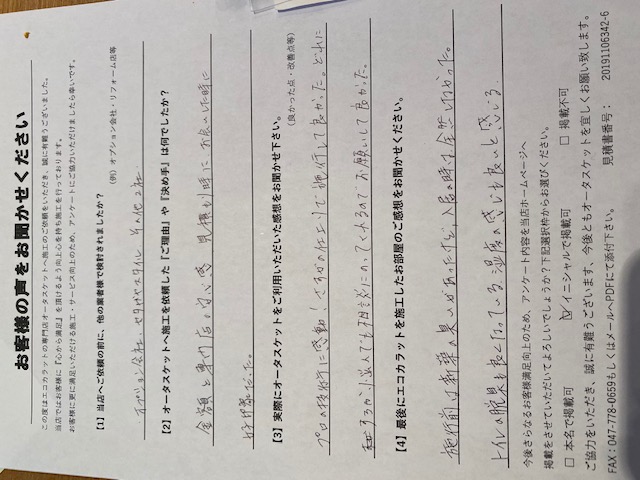 お客様の声をお聞かせください
この度はエコカラットの専門店オータスケットへ施工のご依頼をいただき、誠に有難うございました。
当店ではお客様に『心から満足』を頂けるよう向上心を持ち施工を行っております。
お客様に更に満足いただける施工・サービス向上のため、アンケートにご協力いただけましたら幸いです。
【1】当店へご依頼の前に、他の業者様で検討されましたか?
(例)オプション会社・リフォーム店等
オプション会社、 その他2社
【2】オータスケットへ施工を依頼した『ご理由』や『決め手』は何でしたか?
金額と専門店の安心感 見積もり時にお会いした時に
好印象だった。
【3】実際にオータスケットをご利用いただいた感想をお聞かせ下さい。
(良かった点・改善点等)
プロの技術に感動!さすがの仕上りで施行して良かった。どれに
するか迷んでも相談にのってくれるのでお願いして良かった。
【4】最後にエコカラットを施工したお部屋のご感想をお聞かせください。
施行前は新築の臭いがあったけど、入居の時は全然しなかった。
トイレの脱臭も良くなっている 湿度の感じも良いと感じる
今後さらなるお客様満足向上のため、アンケート内容を当店ホームページへ
掲載をさせていただいてよろしいでしょうか?下記選択枠からお選びください。
□ 本名で掲載可 ☑ イニシャルで掲載可 □ 掲載不可
ご協力をいただき、誠に有難うございます、今後ともオータスケットを宜しくお願い致します。
FAX:047-778-0659もしくはメールへPDFにて添付下さい。 見積書番号: 20191106342-6